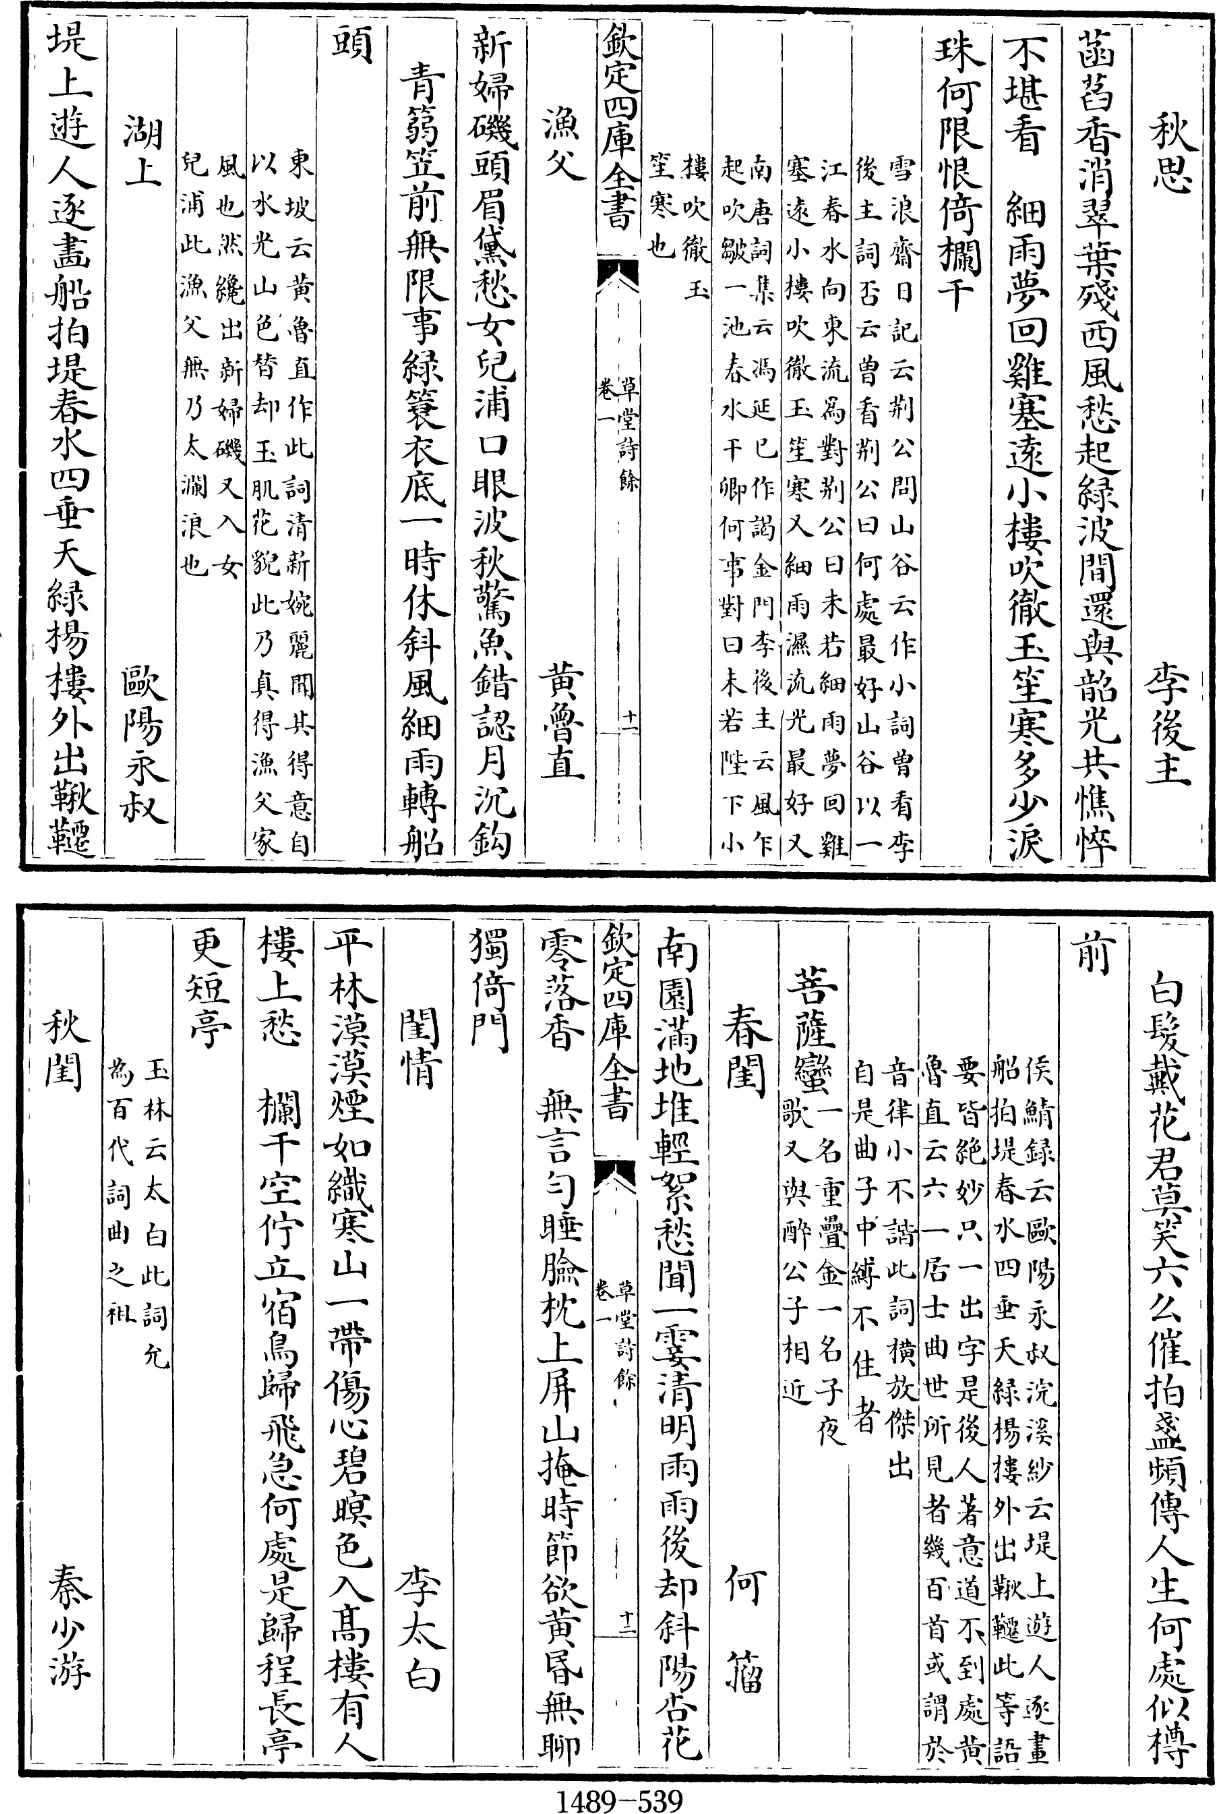 秋思　李後主
菡萏香消翠葉殘西風愁起緑波間還與韶光共憔悴
不堪看　細雨夢回雞塞逺小樓吹徹玉笙寒多少淚
珠何限恨倚欄干
雪浪齋日記云荆公問山谷云作小詞曽看李
後主詞否云曽看荆公曰何處最好山谷以一
江春水向東流為對荆公曰未若細雨夢回雞
塞逺小樓吹徹玉笙寒又細雨濕流光最好又
南唐詞集云馮延巳作謁金門李後主云風乍
起吹皺一池春水干卿何事對曰未若陛下小
樓吹徹玉
笙寒也
欽定四庫全書
草堂詩餘
卷一
十一
漁父　黄魯直
新婦磯頭眉黛愁女兒浦口眼波秋驚魚錯認月沉鈎
青篛笠前無限事緑簑衣底一時休斜風細雨轉船
頭
東坡云黄魯直作此詞清新婉麗聞其得意自
以水光山色替却玉肌花貌此乃真得漁父家
風也然纔出新婦磯又入女
兒浦此漁父無乃太瀾浪也
湖上　歐陽永叔
堤上遊人逐畵船拍堤春水四垂天緑楊樓外出鞦韆
白髮戴花君莫笑六么催拍盞頻傳人生何處似樽
前
侯鯖録云歐陽永叔浣溪紗云堤上遊人逐畫
船拍堤春水四垂天緑楊樓外出鞦韆此等語
要皆絶妙只一出字是後人著意道不到處黄
魯直云六一居士曲世所見者幾百首或謂於
音律小不諧此詞橫放傑出
自是曲子中縛不住者
菩薩蠻
一名重疊金一名子夜
歌又與醉公子相近
春閨　何籀
南園滿地堆輕絮愁聞一霎清明雨雨後却斜陽杏花
欽定四庫全書
草堂詩餘
卷一
十二
零落香　無言匀睡臉枕上屏山掩時節欲黄昬無聊
獨倚門
閨情　李太白
平林漠漠煙如織寒山一帶傷心碧暝色入髙樓有人
樓上愁　欄干空佇立宿鳥歸飛急何處是歸程長亭
更短亭
玉林云太白此詞允
為百代詞曲之祖
秋閨　秦少游
1489-539